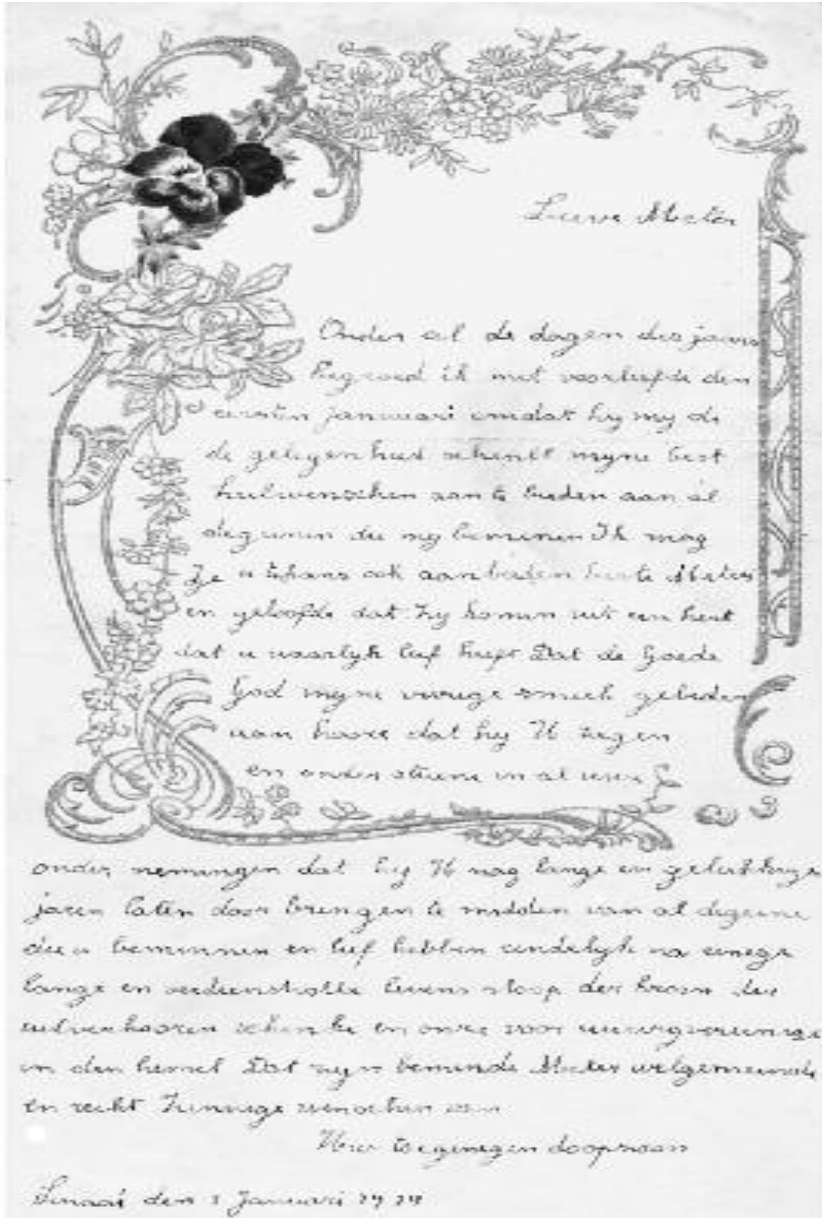 Lieve Meter
Onder al de dagen des jaars
begroed ik met voorliefde den
eersten januuari omdat hy my de
de gelegenheid schenkt myne best
heilwenschen aan te bieden aan al
degenen die my beminnen Ik mag
Ze u thans ook aanbieden beste Meter
en geloofde dat Zy komen uit een hert
dat u waarlyk lief heeft Dat de Goede
God myne vurige smeek gebeden
aan hoore dat hy U zegen
en onder steune in al uwe
onder nemingen dat hy U nog lange en gelukkige
jaren laten door brengen te midden van al degene
die u beminnen en lief hebben eindelyk na eenege
lange en verdienstvolle levens sloop der kroon der
uitverkooren schenke en onze voor
in den hemel Dat zyn beminde Meter welgemeende
en recht Zinnege wenschen van
Uw toegenegen doopzoon
Sinaai den 1 Januari